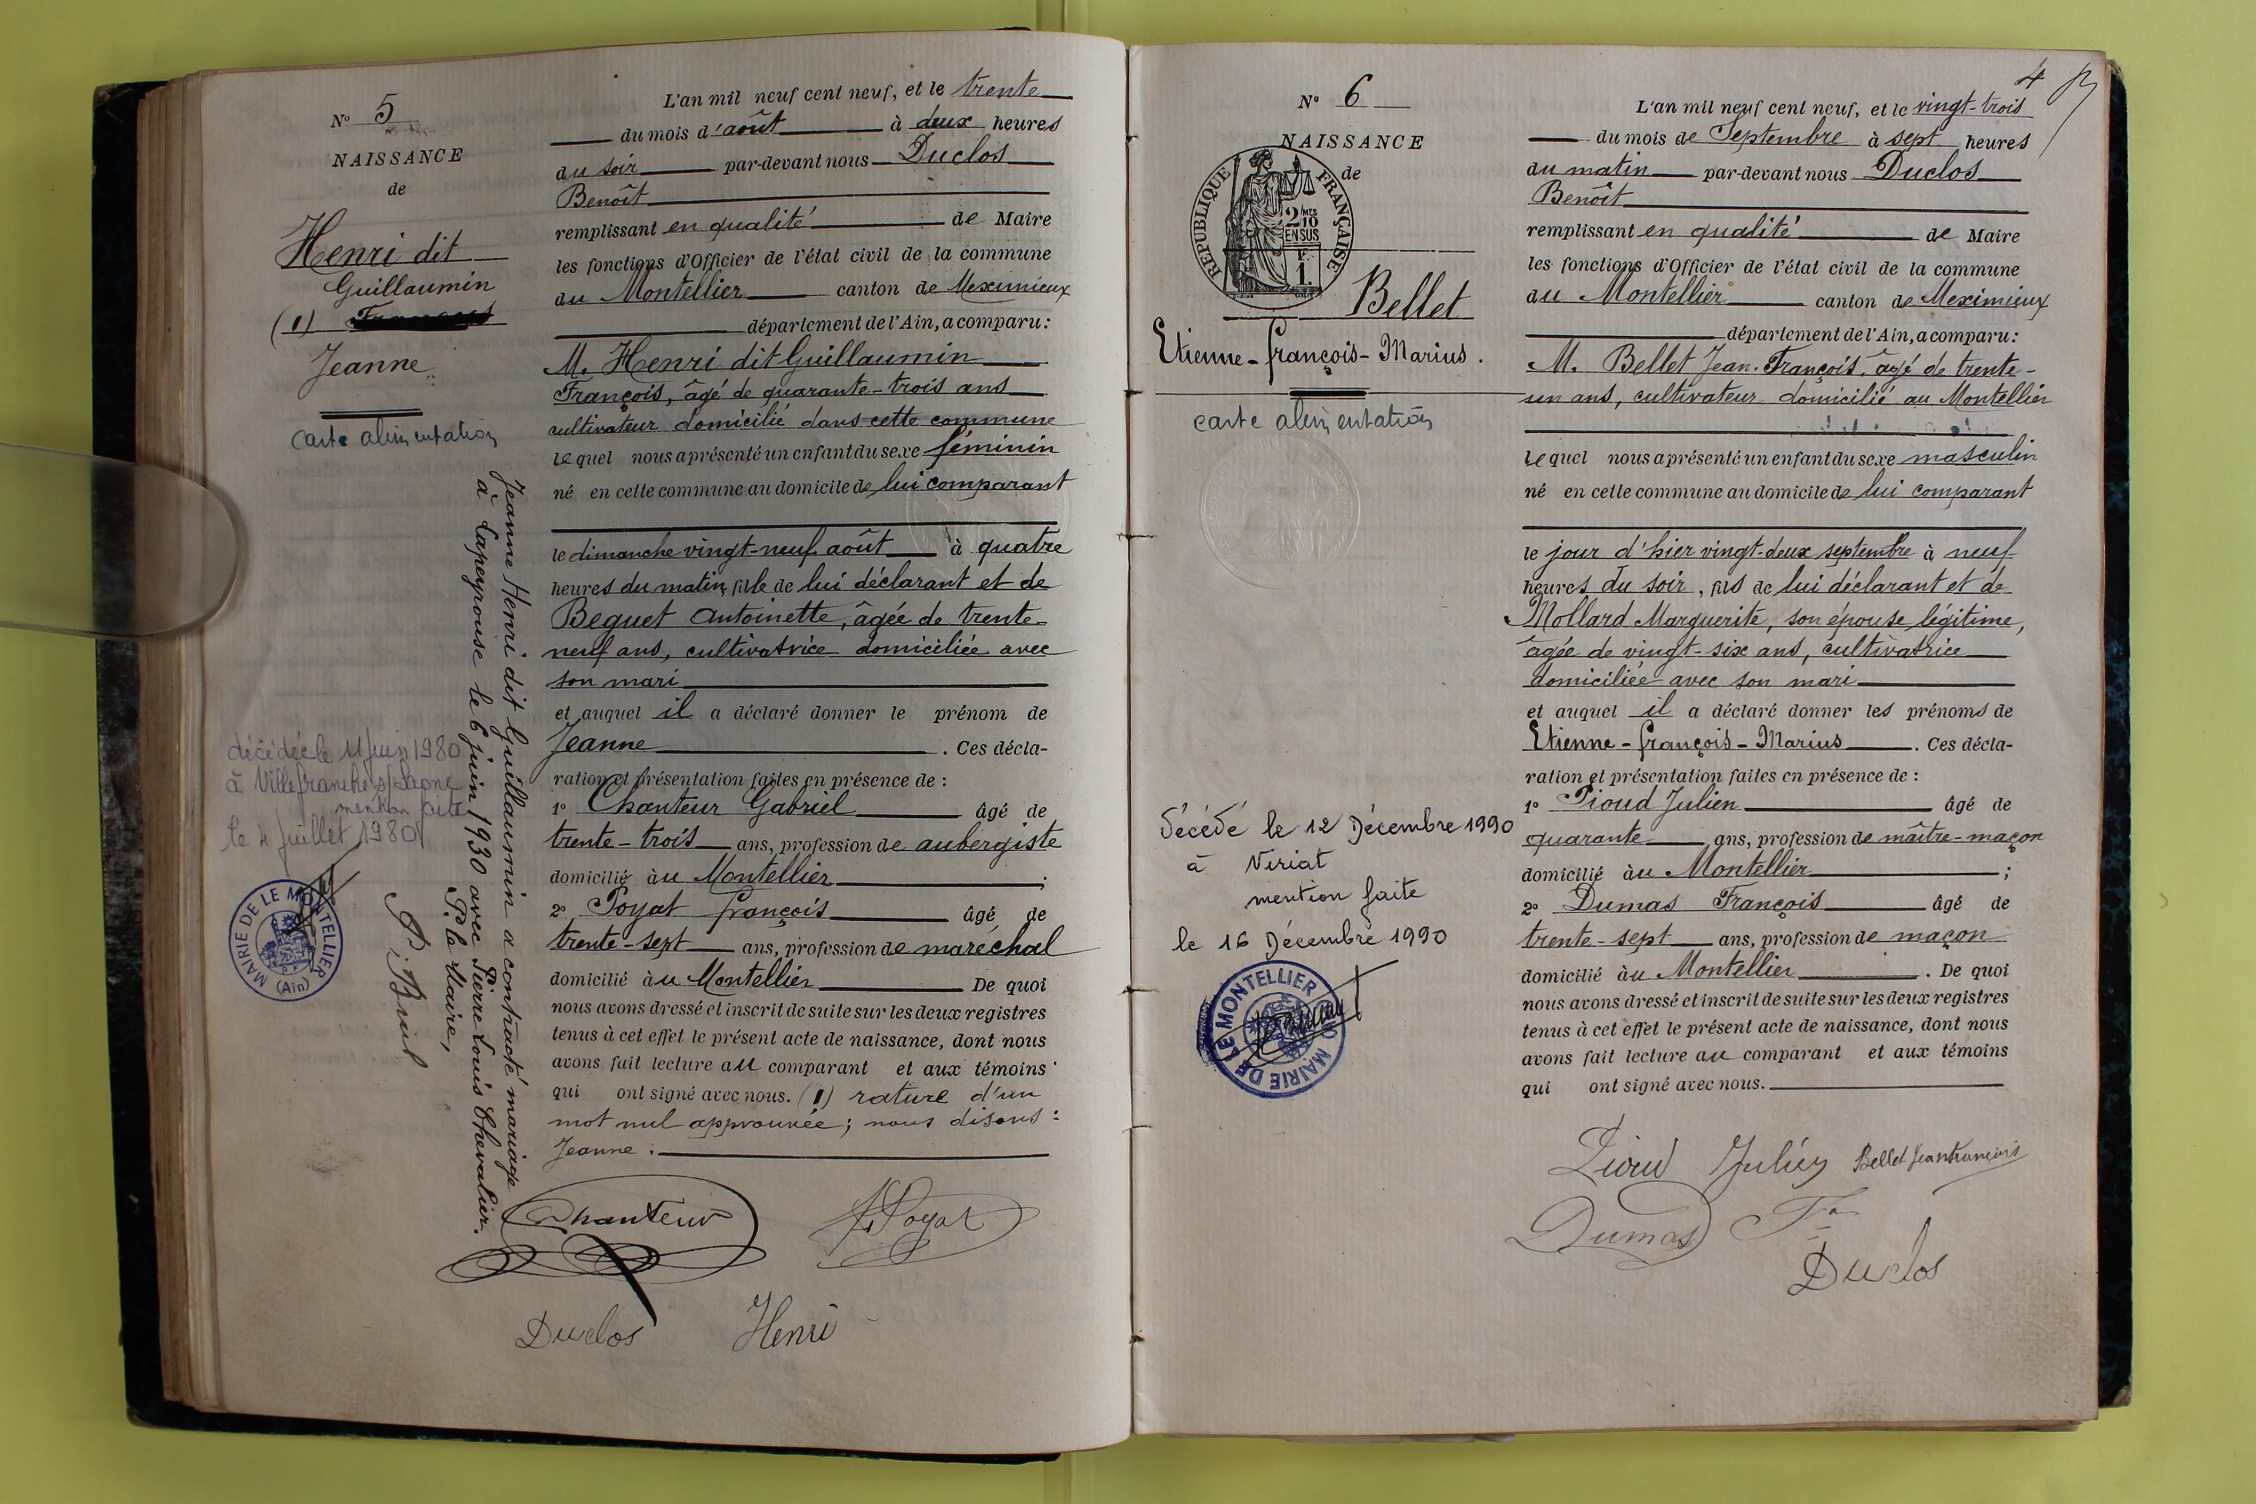 N° 5
NAISSANCE
de
Henri dit
Guillaumin
(1)
Jeanne
carte alimentation
Jeanne Henri dit Guillaumin a contracté mariage
à Lapeyrouse le 6 juin 1930 avec Pierre Louis Chevalier.
P. le Maire,
décédée le 11 Juin 1980
à Villefranche s/ Saône
mention faite
le 4 Juillet 1980
MAIRIE DE LE MONTELLIER
(Ain)
L'an mil neuf cent neuf, et le trente
du mois d'août à deux heures
du soir par-devant nous Duclos
Benoît
remplissant en qualité de Maire
les fonctions d'Officier de l'état civil de la commune
du Montellier canton de Meximieux
département de l'Ain, a comparu:
M. Henri dit Guillaumin
François, âgé de quarante-trois ans
cultivateur domicilié dans cette commune
lequel nous a présenté un enfant du sexe féminin
né en cette commune au domicile de lui comparant
le dimanche vingt-neuf août à quatre
heures du matin, fille de lui déclarant et de
Beguet Antoinette, âgée de trente-
neuf ans, cultivatrice domiciliée avec
son mari
et auquel il a déclaré donner le prénom de
Jeanne. Ces décla-
ration et présentation faites en présence de:
1° Chanteur Gabriel âgé de
trente-trois ans, profession de aubergiste
domicilié au Montellier;
2° Poyat François âgé de
trente-sept ans, profession de maréchal
domicilié au Montellier De quoi
nous avons dressé et inscrit de suite sur les deux registres
tenus à cet effet le présent acte de naissance, dont nous
avons fait lecture au comparant et aux témoins
qui ont signé avec nous. (1) rature d'un
mot nul approuvée; nous disons:
Jeanne.
Chanteur Poyat
Duclos Henri
4
N° 6
NAISSANCE
de
REPUBLIQUE FRANÇAISE
2/10 MES
EN SUS
F.
1.
Bellet
Etienne-François-Marius.
carte alimentation
Décédé le 12 Décembre 1990
à Viriat
mention faite
le 16 Décembre 1990
MAIRIE DE LE MONTELLIER
L'an mil neuf cent neuf, et le vingt-trois
du mois de Septembre à sept heures
du matin par-devant nous Duclos
Benoît
remplissant en qualité de Maire
les fonctions d'Officier de l'état civil de la commune
du Montellier canton de Meximieux
département de l'Ain, a comparu:
M. Bellet Jean-François, âgé de trente-
un ans, cultivateur domicilié au Montellier
lequel nous a présenté un enfant du sexe masculin
né en cette commune au domicile de lui comparant
le jour d'hier vingt-deux septembre à neuf
heures du soir, fils de lui déclarant et de
Mollard Marguerite, son épouse légitime,
âgée de vingt-six ans, cultivatrice
domiciliée avec son mari
et auquel il a déclaré donner les prénoms de
Etienne-François-Marius. Ces décla-
ration et présentation faites en présence de:
1° Pioud Julien âgé de
quarante ans, profession de maître-maçon
domicilié au Montellier;
2° Dumas François âgé de
trente-sept ans, profession de maçon
domicilié au Montellier. De quoi
nous avons dressé et inscrit de suite sur les deux registres
tenus à cet effet le présent acte de naissance, dont nous
avons fait lecture au comparant et aux témoins
qui ont signé avec nous.
Pioud Julien Bellet Jean François
Dumas Fr
Duclos